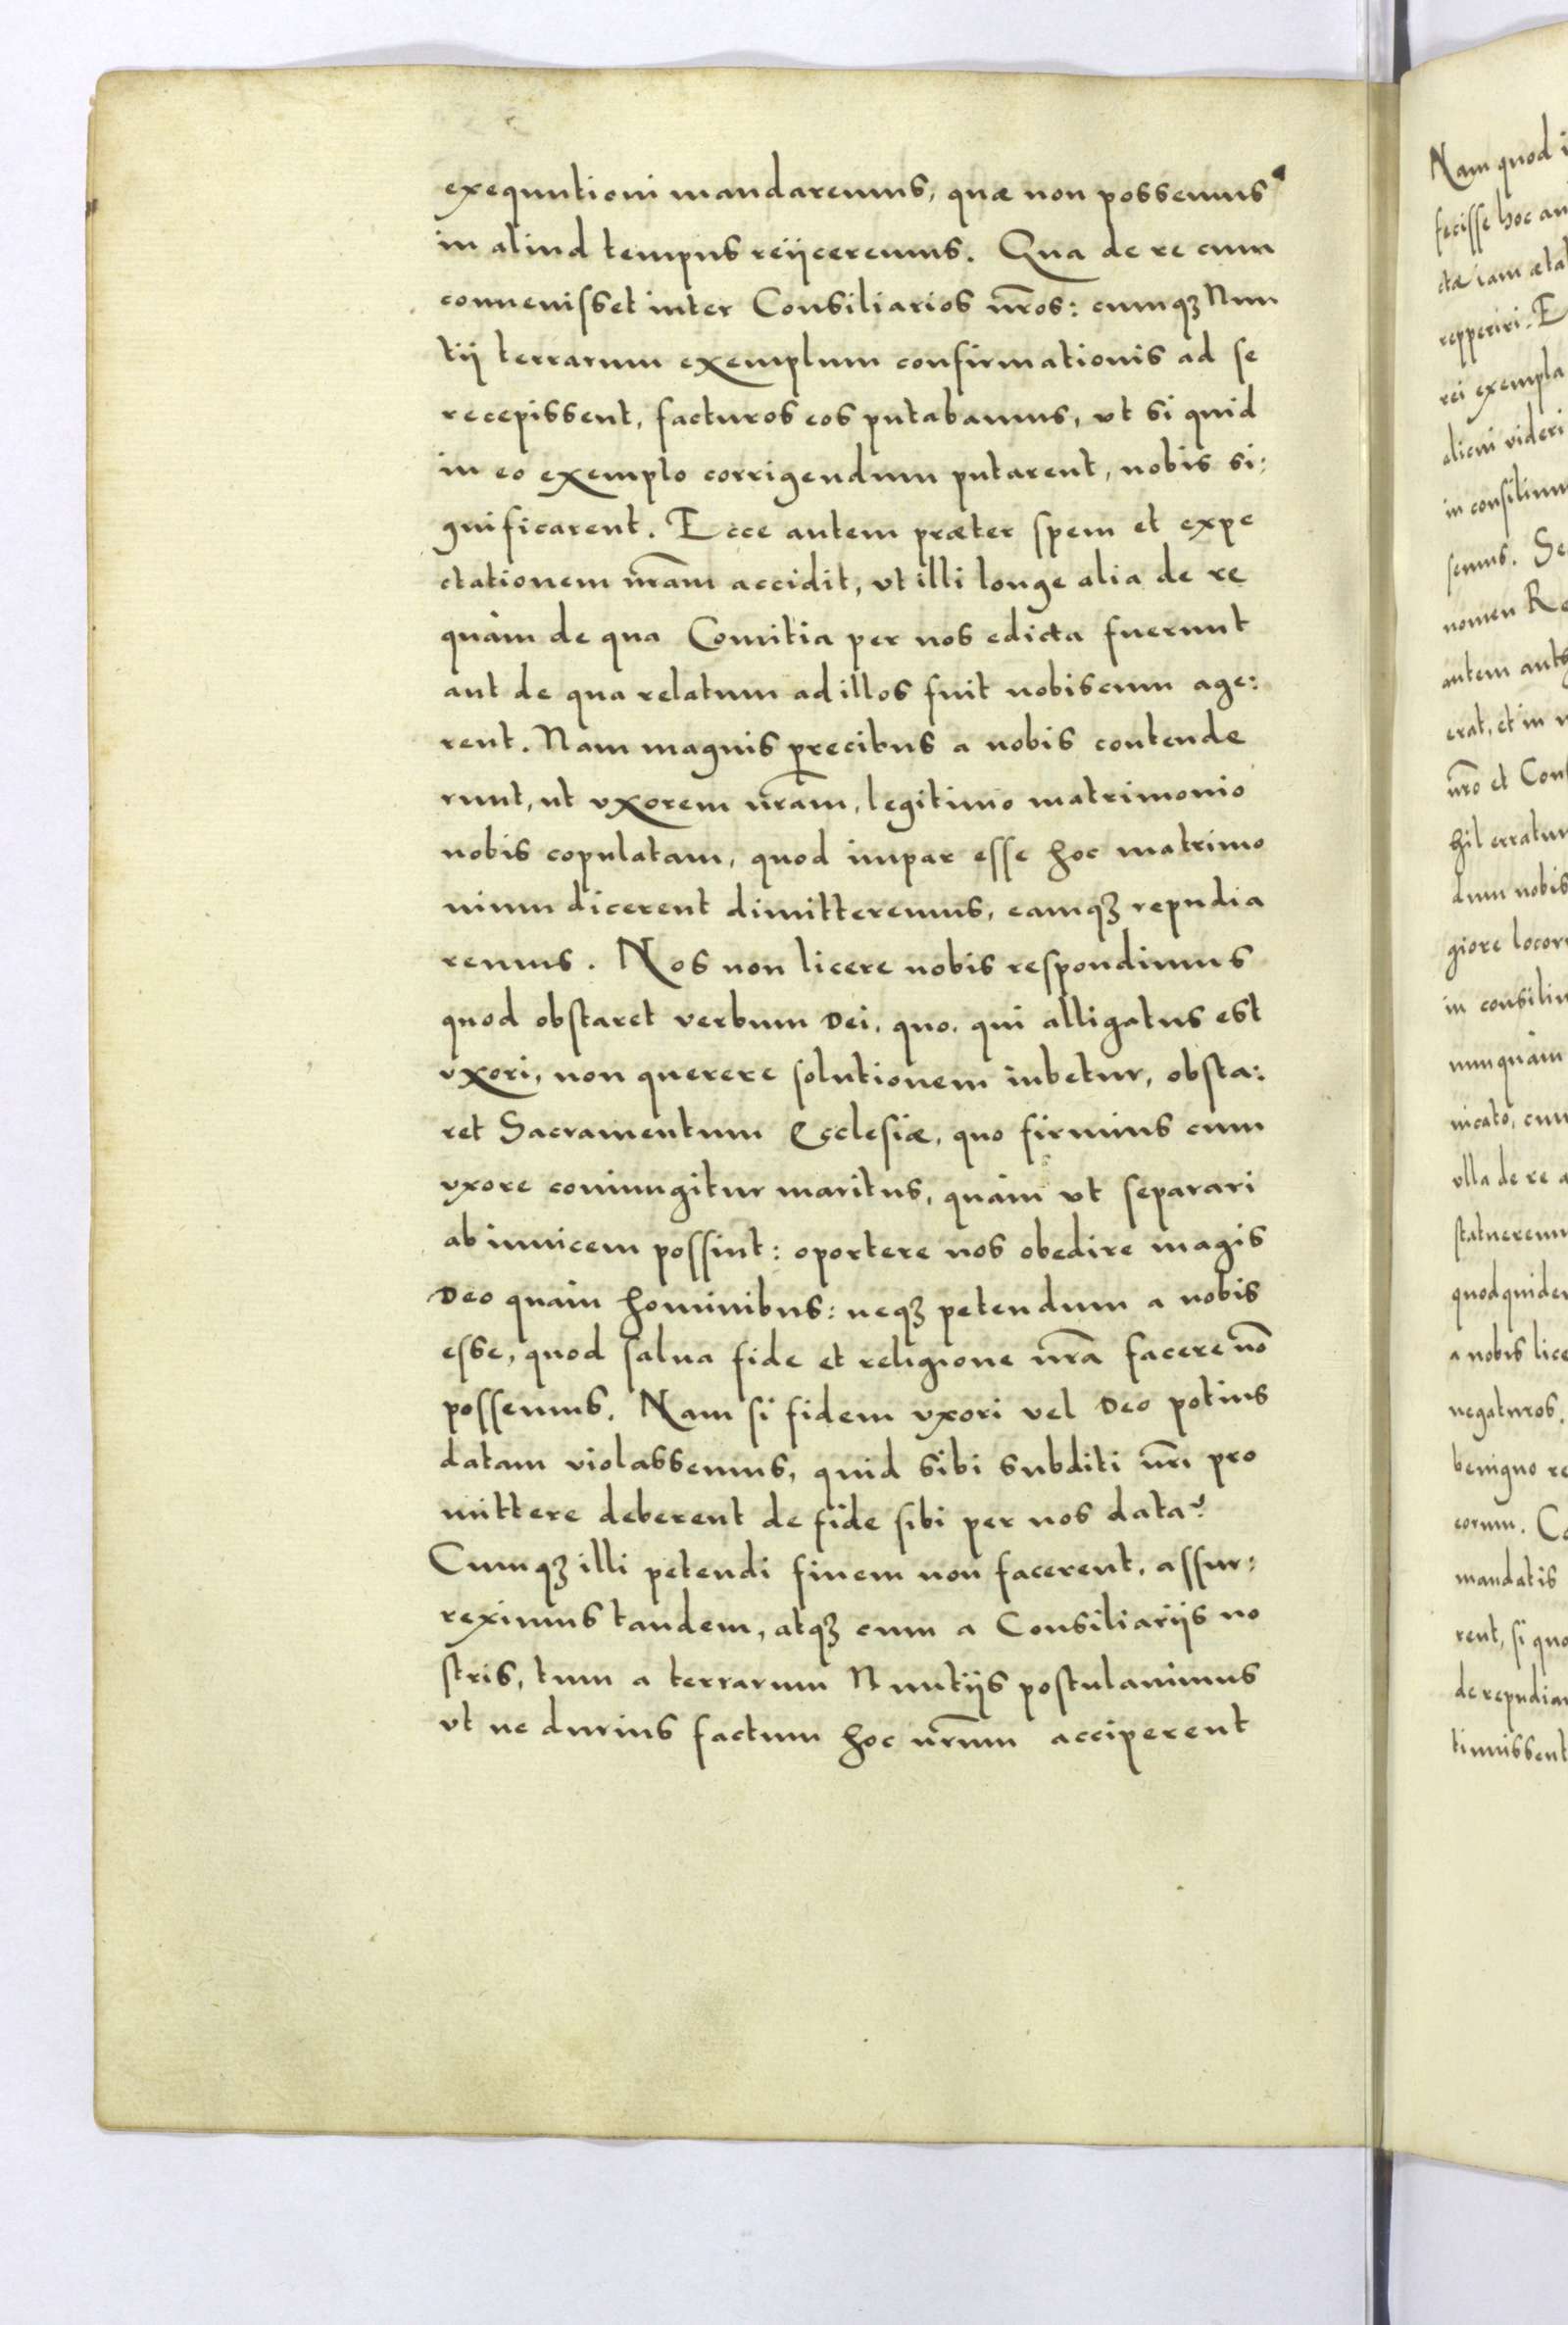 exequutioni mandaremus, quæ non possemus
in aliud tempus reijceremus. Qua de re cum
conuenisset inter Consiliarios nr̃os: cumqȝ Nun
tij terrarum exemplum confirmationis ad se
recepissent, facturos eos putabamus, vt si quid
in eo exemplo corrigendum putarent, nobis si:
gnificarent. Ecce autem præter spem et expe
ctationem nr̃am accidit, vt illi longe alia de re
quàm de qua Comitia per nos edicta fuerunt
aut de qua relatum ad illos fuit nobiscum age:
rent. Nam magnis precibus a nobis contende
runt, ut vxorem nr̃am, legitimo matrimonio
nobis copulatam, quod impar esse hoc matrimo
nium dicerent dimitteremus, eamqȝ repudia
remus. Nos non licere nobis respondimus
quod obstaret verbum Dei, quo, qui alligatus est
vxori, non querere solutionem iubetur, obsta:
ret Sacramentum Ecclesiæ, quo firmius cum
vxore coniungitur maritus, quàm vt separari
ab inuicem possint: oportere nos obedire magis
Deo quàm hominibus: neqȝ petendum a nobis
esse, quod salua fide et religione nr̃a facere nõ
possemus. Nam si fidem vxori vel Deo potius
datam violassemus, quid sibi subditi nr̃i pro
mittere deberent de fide sibi per nos data?
Cumqȝ illi petendi finem non facerent, assur:
reximus tandem, atqȝ cum a Consiliarijs no
stris, tum a terrarum Nuntijs postulauimus
vt ne durius factum hoc nr̃um acciperent
Nam quod
fecisse hoc
ctæ iam
repperiri.
rei exempla
alicui videri
in consilium
semus.
nomen
autem
erat, et in
nr̃o et
hil
dum nobis
giore
in
nunquàm
nicato,
vlla de re
a nobis
negaturos.
benigno
eorum.
mandatis
rent, si